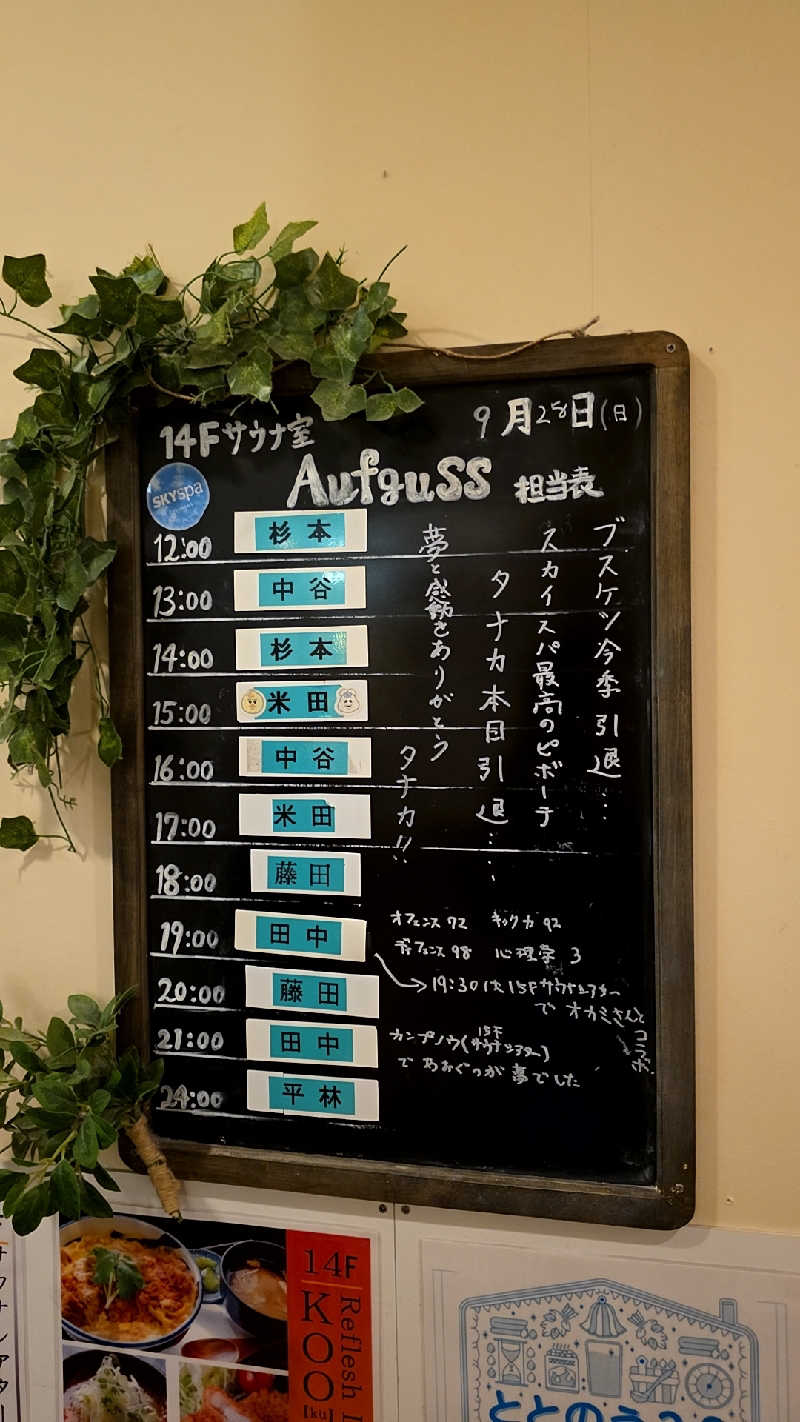 14Fサウナ室
9月28日(日)
Aufguss 担当表
SKYspa
12:00 杉本
13:00 中谷
14:00 杉本
15:00 米田
16:00 中谷
17:00 米田
18:00 藤田
19:00 田中
20:00 藤田
21:00 田中
24:00 平林
ブスケツ今季引退…
スカイスパ最高のピボーテ
タナカ本日引退……
夢と感動をありがとう
タナカ!!
オフェンス72 キック力92
ディフェンス98 心理学3
→19:30は15Fサウナシアター
で オカミさんと
コラボ
カンプノウ(15Fサウナシアター)
で あおぐのが夢でした
14F
KOO
[ku
Reflesh
サウナシアター
ととのえ